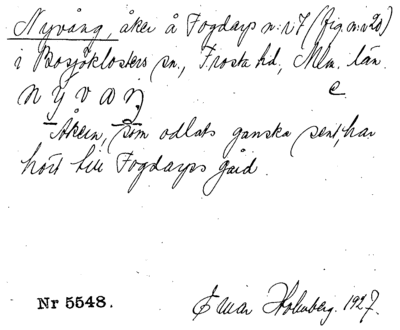 Nyvång, åker å Fogdarp n:r 7 (fig. n:r 20)
i Bosjöklosters sn., Frosta hd, Mlm. län.
nyvaŋ c.
Åkern, som odlats ganska sent, har
hört till Fogdarps gård.
Nr 5548.
Einar Holmberg. 1927.